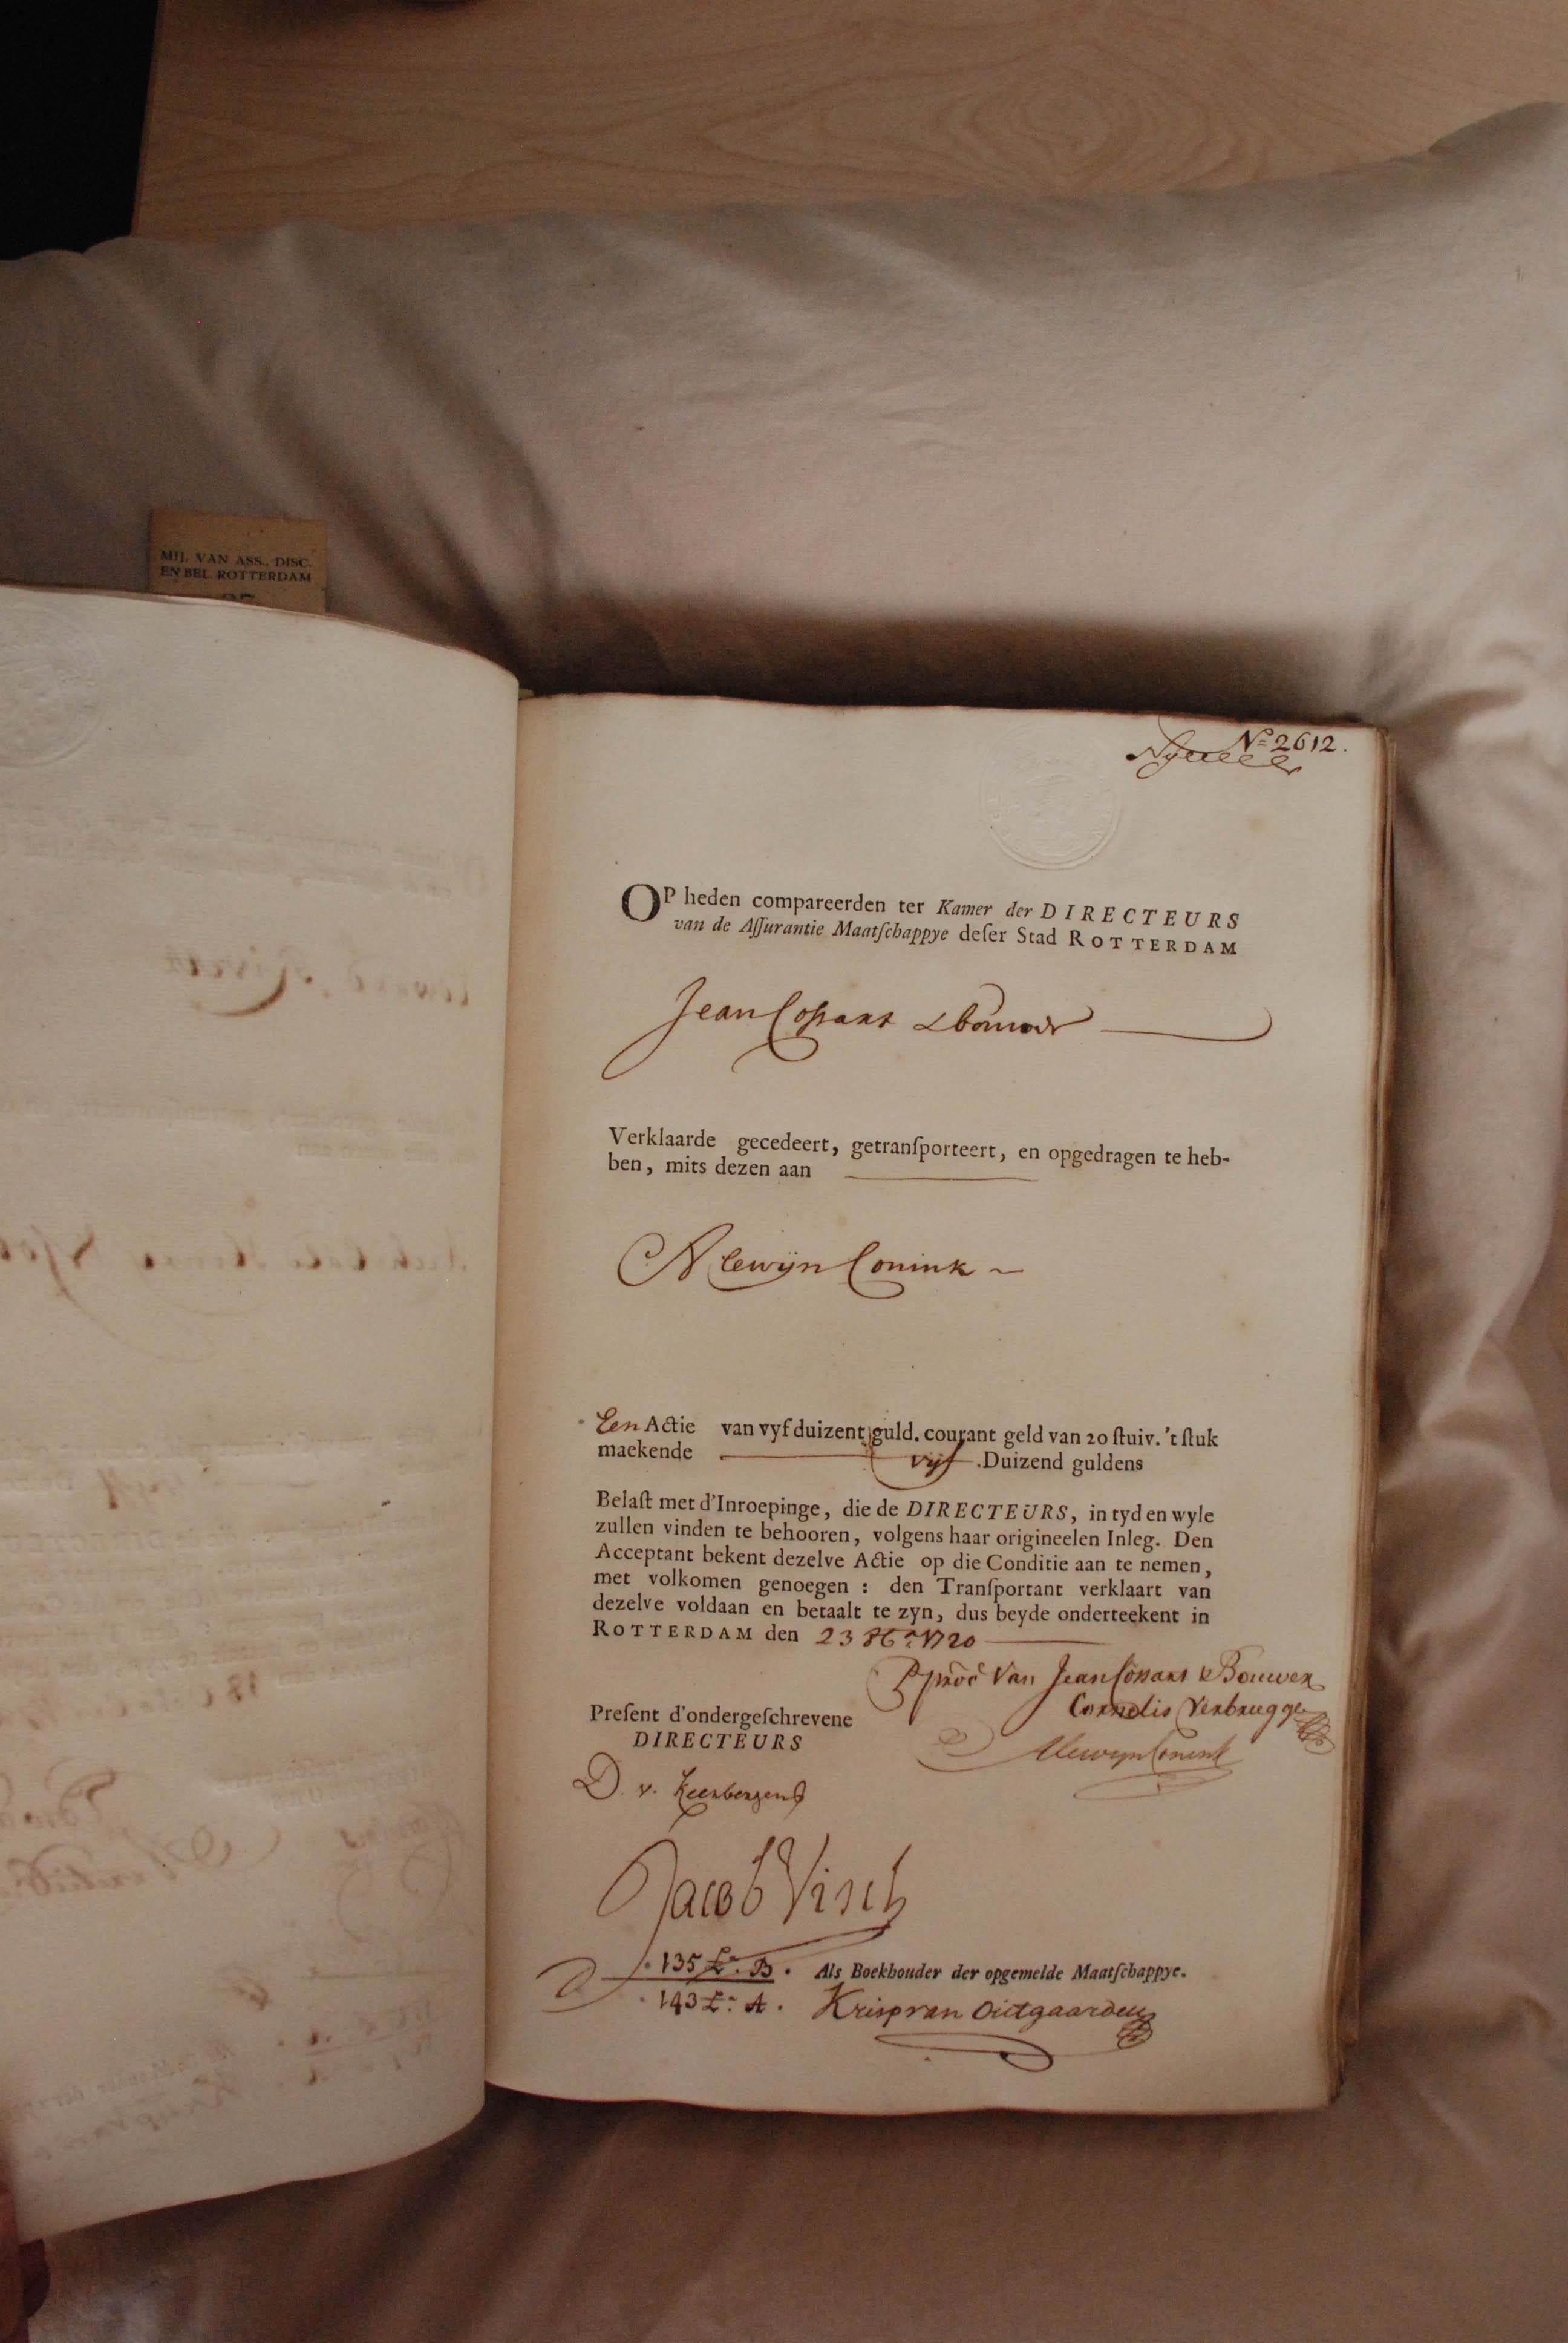 MIJ. VAN ASS., DISC.
EN BEL. ROTTERDAM
No 2612.
OP heden compareerden ter Kamer der DIRECTEURS
van de Aſſurantie Maatſchappye deſer Stad ROTTERDAM
Jean Coſsart & bouwer
Verklaarde gecedeert, getranſporteert, en opgedragen te heb-
ben, mits dezen aan
Alewijn Conink
Een Actie van vyf duizent guld. courant geld van 20 ſtuiv. 't ſtuk
maekende vijf .Duizend guldens
Belaſt met d'Inroepinge, die de DIRECTEURS, in tyd en wyle
zullen vinden te behooren, volgens haar origineelen Inleg. Den
Acceptant bekent dezelve Actie op die Conditie aan te nemen,
met volkomen genoegen : den Tranſportant verklaart van
dezelve voldaan en betaalt te zyn, dus beyde onderteekent in
ROTTERDAM den 23 8br 1720
Van Jean Coſsart & Bouwer
Cornelis Verbrugge
Alewyn Conink
Preſent d'ondergeſchrevene
DIRECTEURS
D. v. Keerbergen
Jacob Visch
135 Lr. B. Als Boekhouder der opgemelde Maatſchappye.
143 Lr. A. Krisp van Oidtgaarden